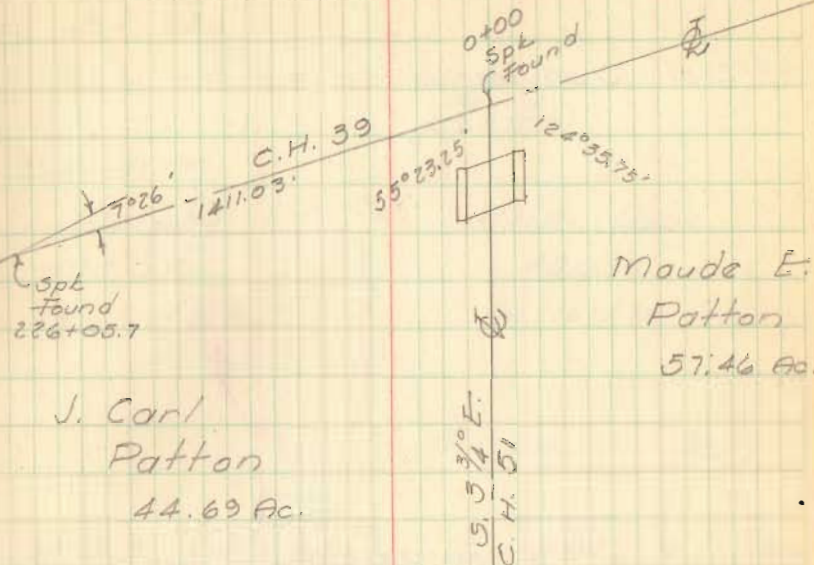 0+00
Spk
Found
C.H. 39
1411.03'
7°26'
55°23.25'
124°35.75'
Spk
Found
226+05.7
Maude E.
Patton
57.46 Ac.
J. Carl
Patton
44.69 Ac.
S. 3 3/4° E.
C. H. 51